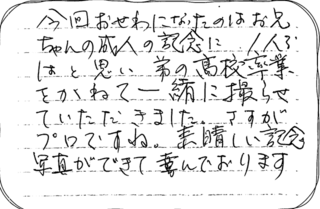 今回おせわになったのはお兄
ちゃんの成人の記念に 1人で
はと思い 弟の高校卒業
をかねて一緒に撮らせ
ていただきました。さすが
プロですね。素晴しい記念
写真ができて喜んでおります